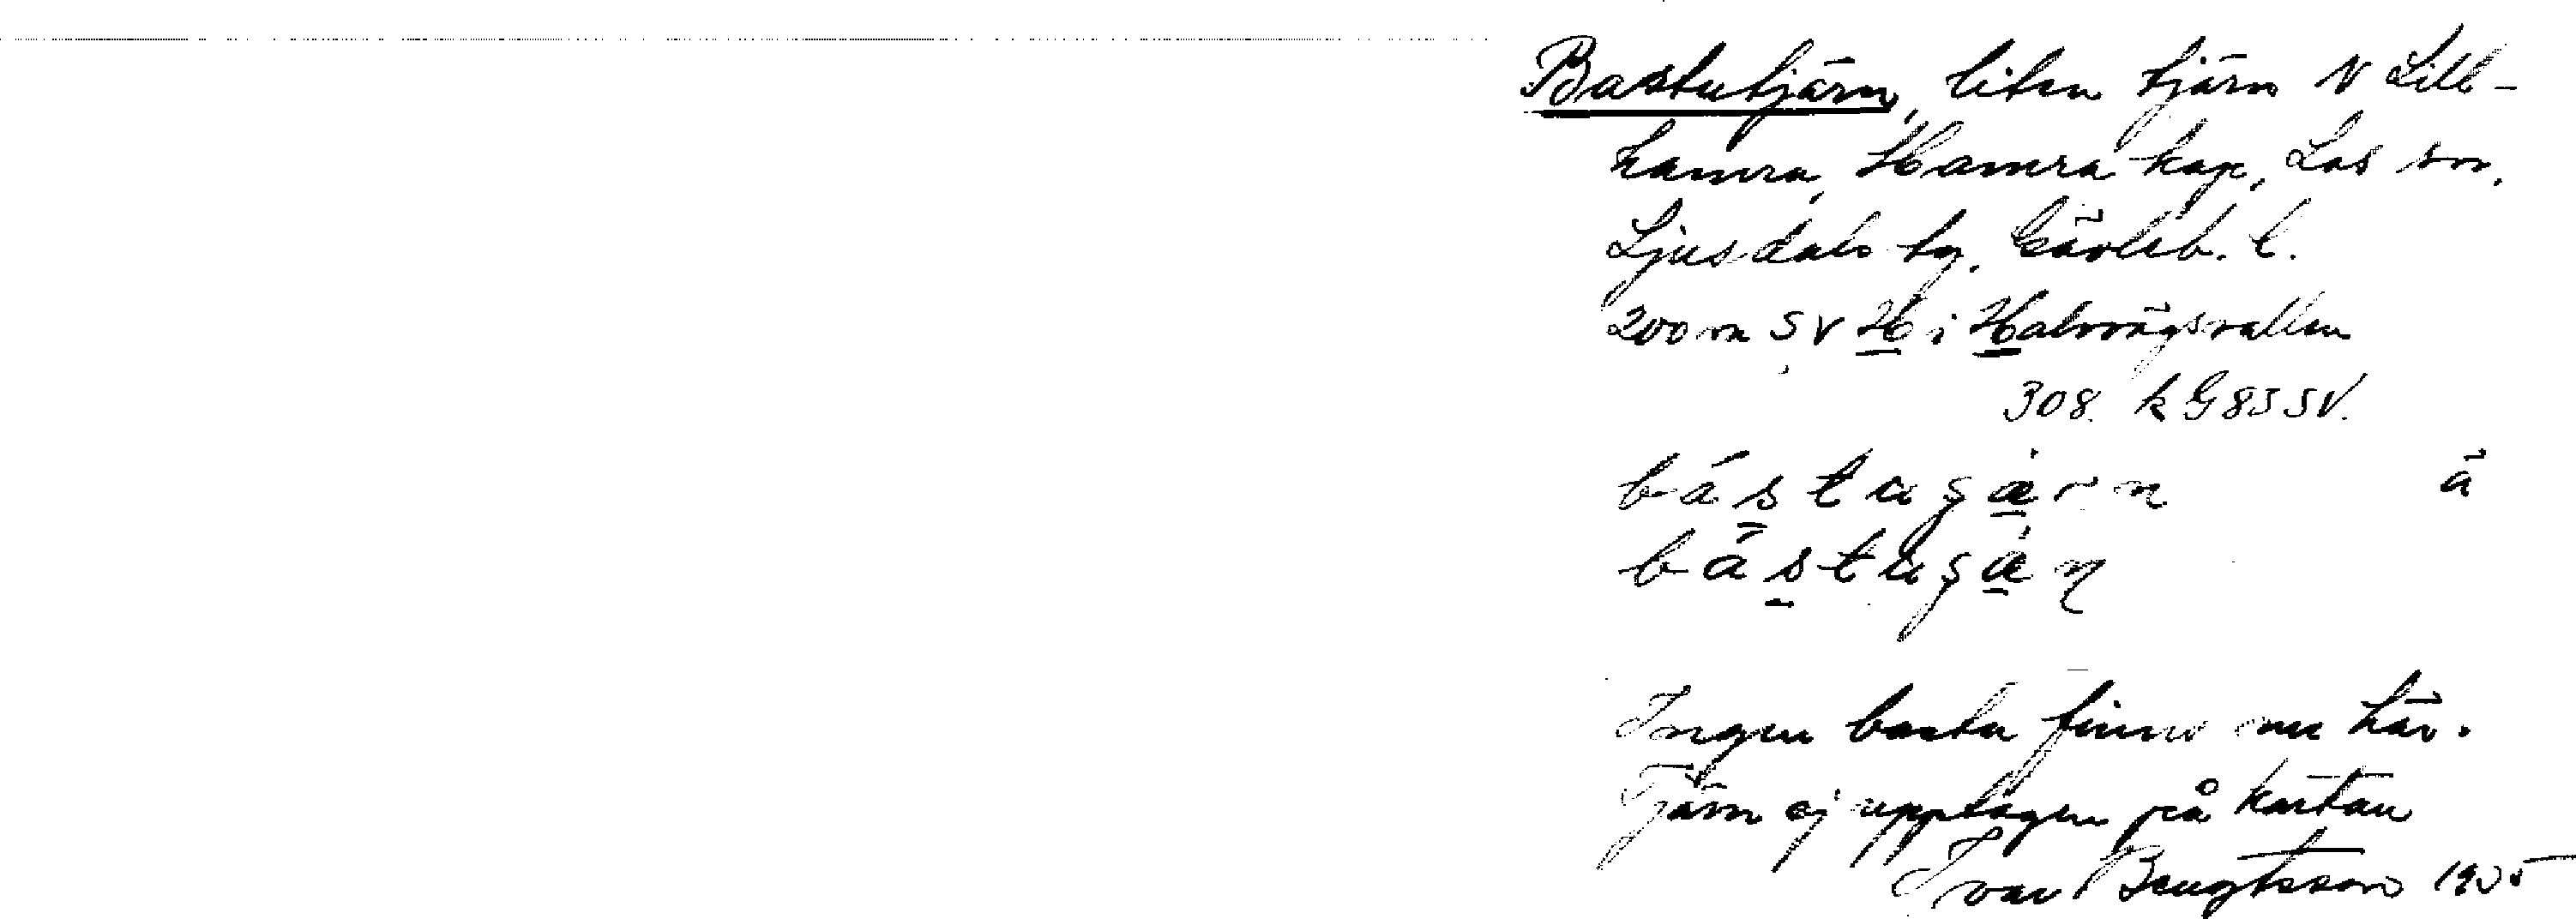 Bastutjärn, liten tjärn N Lill-
hamra, Hamra kap. Los sn,
Ljusdals tg. Gävleb. l.
200 m SV H i Halvvägsvallen
308. k G 83 SV.
Ingen bastu finns nu här.
Tjärn ej upptagen på kartan
Ivar Bengtsson 19